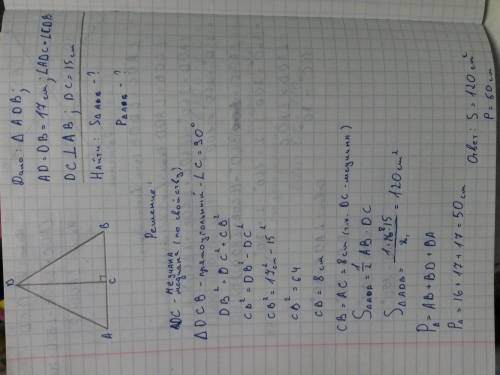 Дано: ΔADB;
AD=DB=17cm; ∠ADC=∠CDB
DC⊥AB; DC=15cm
Найти: SΔADB-?
PΔADB-?
D
A
C
B
Решение:
DC-медиана
медиана (по свойству)
ΔDCB-прямоугольный-∠C=90°
DB²=DC²+CB²
CB²=DB²-DC²
CB²=17²cm-15²
CB²=64
CB=8cm
CB=AC=8cm (т.к. DC-медиана)
SΔADB=1/2 AB·DC
SΔADB= 1·16⁸·15/2₁ =120cm²
PΔ=AB+BD+BA
PΔ=16+17+17=50cm
Ответ: S=120cm²
P=60cm